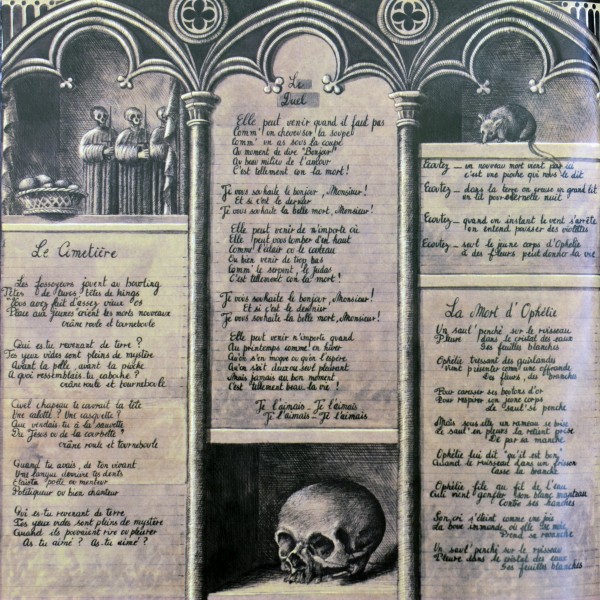 Le Cimetière
Les fossoyeurs jouent au bowling
Têtes de turcs, têtes de kings
Vous avez fait d'assez vieux os
Place aux jeunes crient les morts nouveaux
crâne roule et tourneboule
Ceci es-tu revenant de terre ?
Tes yeux vides sont pleins de mystère
Avant la pelle, avant la pioche
A quoi ressemblais-tu caboche ?
crâne roule et tourneboule
Quel chapeau te couvrait la tête
Une calotte ? Une casquette ?
Que vendais-tu à la sauvette
Du Jésus ou de la
crâne roule et tourneboule
Quand tu avais, de ton vivant
Une langue derrière tes dents
Etais-tu poète ou menteur
Politiqueur ou bien chanteur
Qui es-tu revenant de terre
Tes yeux vides sont pleins de mystère
Quand ils pouvaient rire ou pleurer
As tu aimé ? As-tu aimé ?
Le
Duel
Elle peut venir quand il faut pas
Comm' un cheveu sur la soupe
Comm' un as sous la coupe
Au moment de dire "Bonjour"
Au beau milieu de l'amour
C'est tellement con la mort !
Je vous souhaite le bonjour, Monsieur !
Et si c'est le dernier
Je vous souhaite la belle mort, Monsieur !
Elle peut venir de n'importe où
Elle peut vous tomber d'en haut
Comm' l'éclair ou le couteau
Ou bien venir de trop bas
Comm' le serpent, le Judas
C'est tellement con la mort !
Je vous souhaite le bonjour, Monsieur !
Et si c'est le dernier
Je vous souhaite la belle mort, Monsieur !
Elle peut venir n'importe quand
Au printemps comme en hiver
Qu'on s'en moque ou qu'on l'espère
Qu'on s'ait deux ou seul pleurant
Mais jamais au bon moment
C'est tellement beau, la vie !
Je t'aimais - Je t'aimais
Je t'aimais - Je t'aimais
Ecoutez - un nouveau mort vient par ici
c'est une pioche qui nous le dit
Ecoutez - dans la terre on creuse un grand lit
un lit pour éternelle nuit
Ecoutez - quand un instant le vent s'arrête
on entend pousser des violettes
Ecoutez - seul le jeune corps d'Ophélie
a des fleurs peut donner la vie
La Mort d'Ophélie
Un saul' penché sur le ruisseau
Pleure dans le cristal des eaux
Ses feuilles blanches
Ophélie tressant des guirlandes
Vient présenter comm' une offrande
Des fleurs, des branches
Pour caresser ses boutons d'or
Pour respirer son jeune corps
Le saul' se penche
Mais sous elle un rameau se brise
Le saul' en pleurs la retient prise
De par sa manche
Ophélie lui dit "qu'il est bon"
Quand le ruisseau dans un frisson
Casse la branche
Ophélie file au fil de l'eau
Qui vient gonfler son blanc manteau
Contre ses hanches
Son cri s'éteint comme une joie
la boue immonde où elle se noie
Prend sa revanche
Un saul' penché sur le ruisseau
Pleure dans le cristal des eaux
Ses feuilles blanches